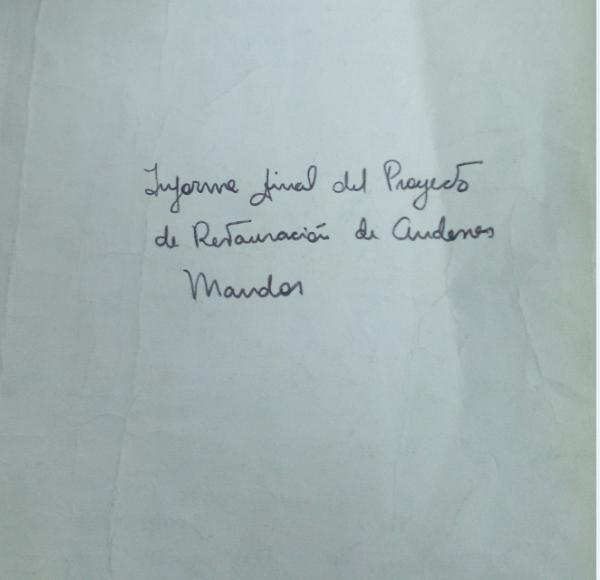 Informe final del Proyecto
de Restauración de Andenes
Mandor